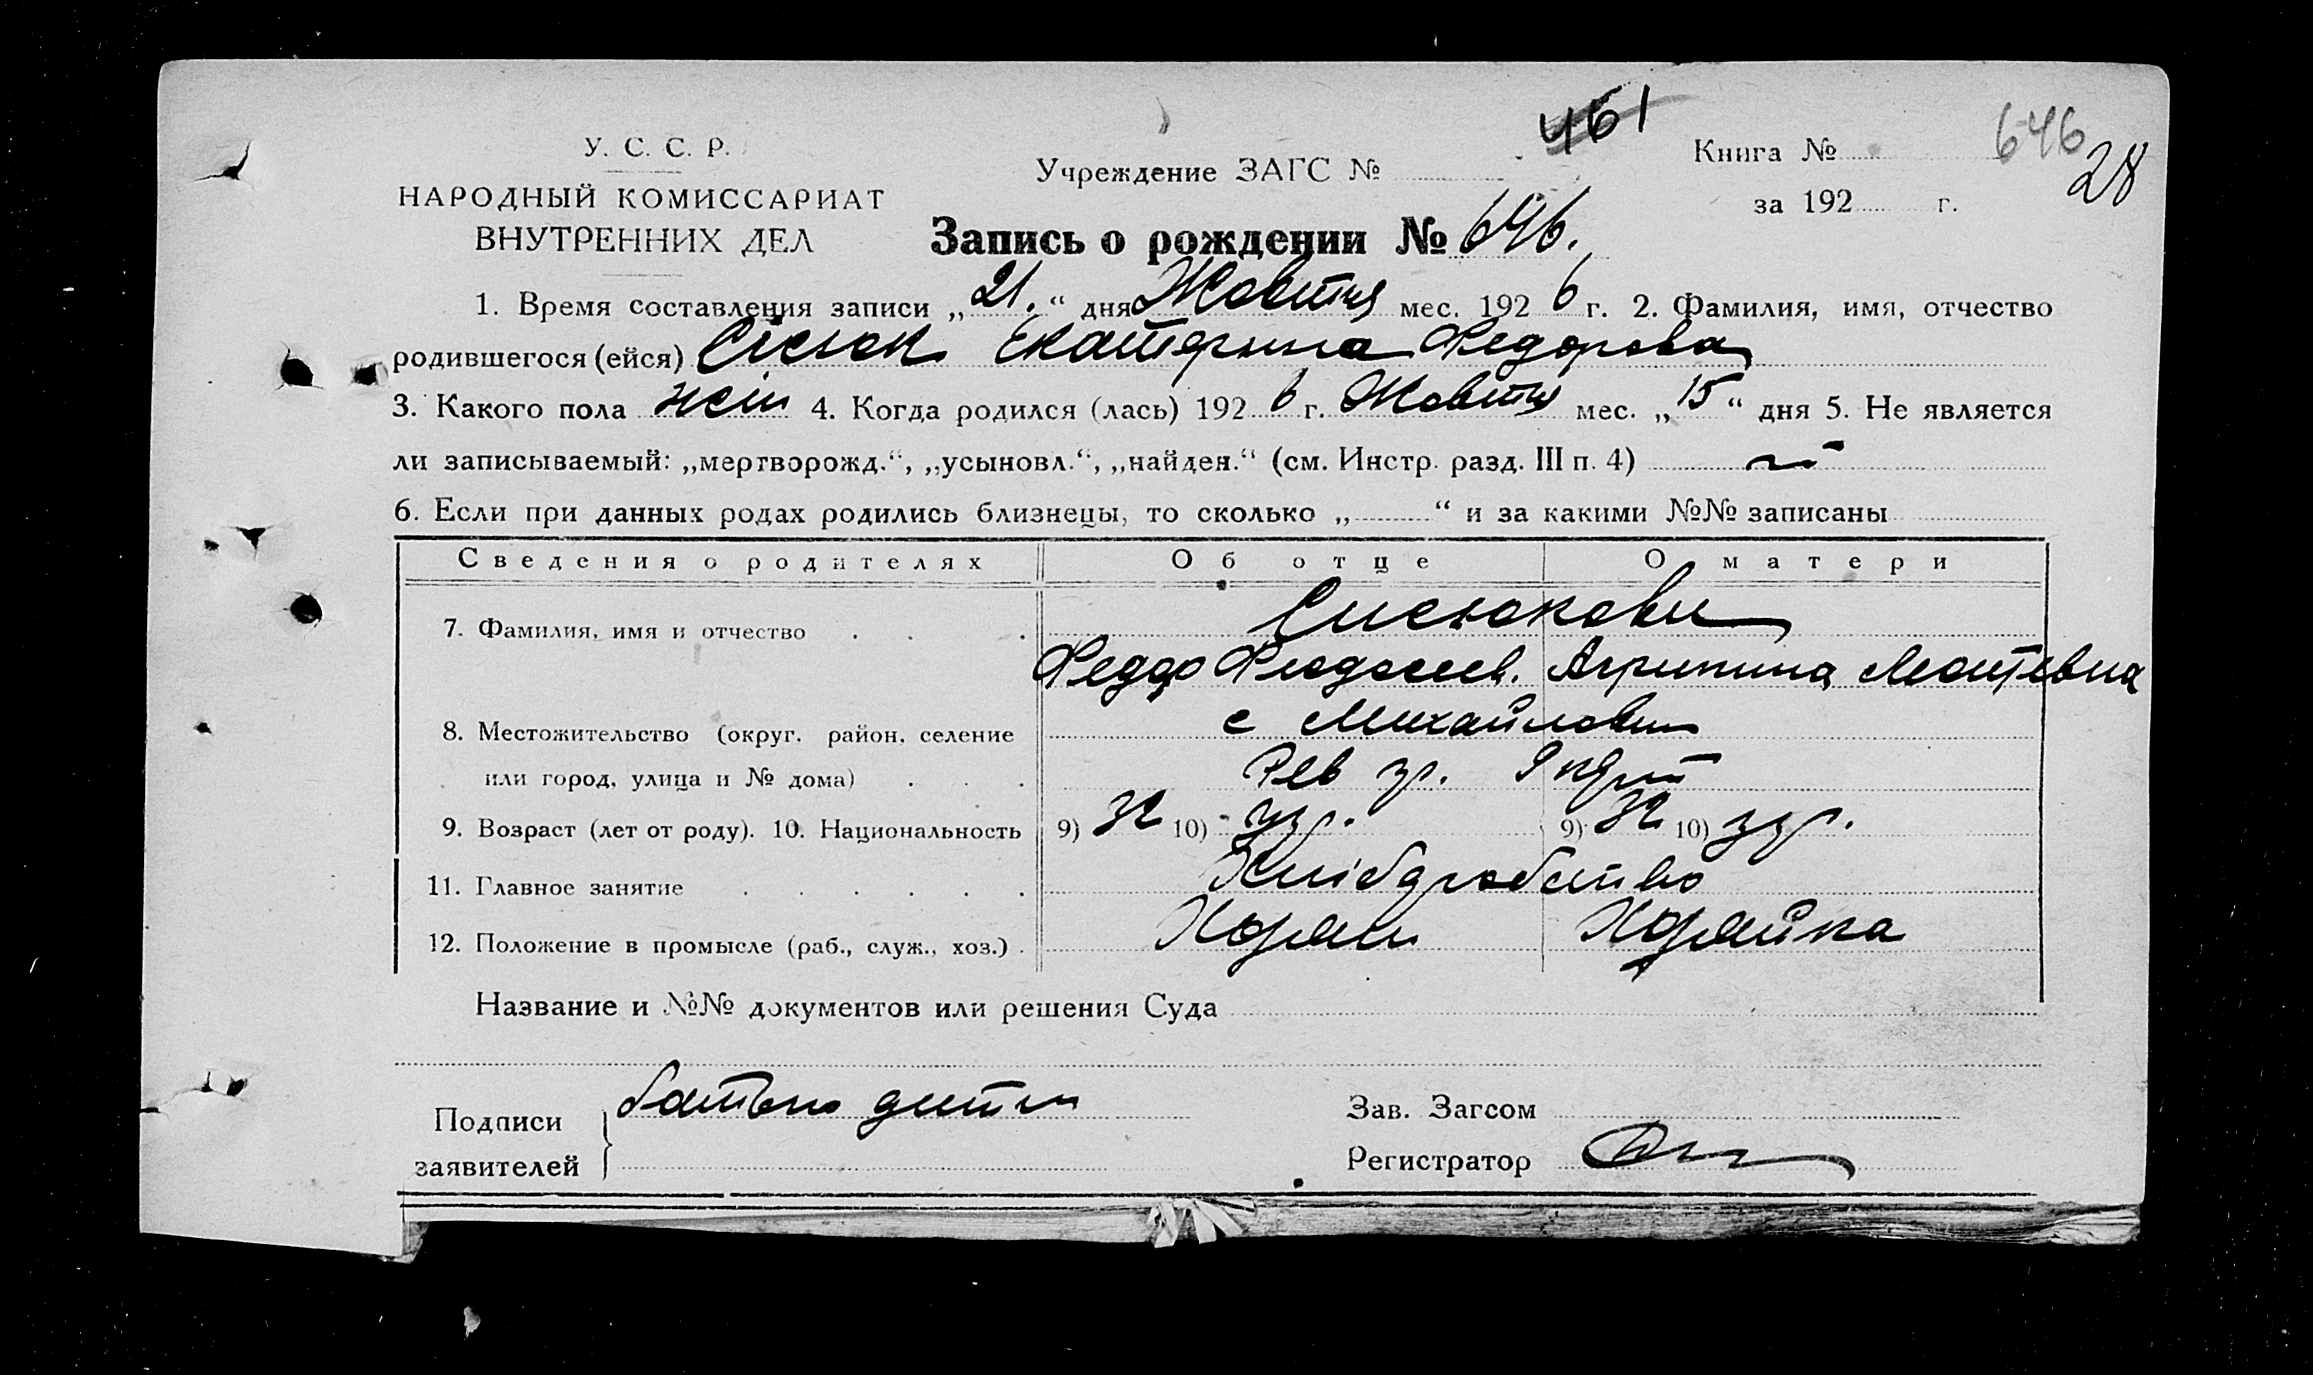 461
646
28
У. С. С. Р.
НАРОДНЫЙ КОМИССАРИАТ
ВНУТРЕННИХ ДЕЛ
Учреждение ЗАГС №
Книга №
за 192 г.
Запись о рождении № 646.
1. Время составления записи „ 21. “ дня Жовтня мес. 192 6 г. 2. Фамилия, имя, отчество
родившегося (ейся) Сисюк Екатерина Федорова
3. Какого пола жін 4. Когда родился (лась) 192 6 г. Жовтня мес. „ 15 “ дня 5. Не является
ли записываемый: „мертворожд.“, „усыновл.“, „найден.“ (см. Инстр. разд. III п. 4) ні
6. Если при данных родах родились близнецы, то сколько „ “ и за какими №№ записаны
Сведения о родителях Об отце О матери
7. Фамилия, имя и отчество Сисюкови
Федор Феодосиев. Агрипина
8. Местожительство (округ. район, селение с Михайловки
или город, улица и № дома)
9. Возраст (лет от роду). 10. Национальность 9) 32 10) укр. 9) 32 10) укр.
11. Главное занятие Хліборобство
12. Положение в промысле (раб., служ., хоз.) Хозяин Хозяйка
Название и №№ документов или решения Суда
Подписи батько дитини
заявителей
Зав. Загсом
Регистратор